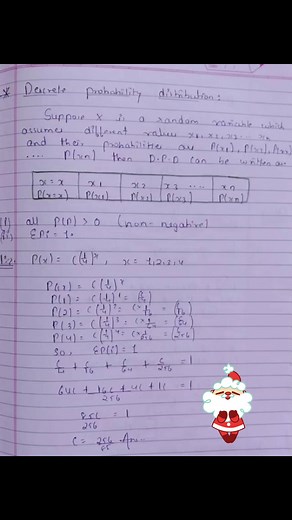 * Descrete probability distribution:
Suppose x is a random variable which
assumes different values x1, x2, ... xn
and their probabilities are P(x1), P(x2),
.... P(xn) then D.P.D can be written as
x = x x1 x2 x3 .... xn
P(x=x) P(x1) P(x2) P(x3) P(xn)
all P(P) > 0 (non-negative)
ΣPi = 1.
P(x) = C(1/4)^x, x = 1,2,3,4
P(1) = C(1/4)^1 = C/4
P(2) = C(1/4)^2 = C/16
P(3) = C(1/4)^3 = C/64
P(4) = C(1/4)^4 = C/256
So, ΣPi = 1
C/4 + C/16 + C/64 + C/256 = 1
64C + 16C + 4C + 1C / 256 = 1
85C/256 = 1
C = 256/85 Ans